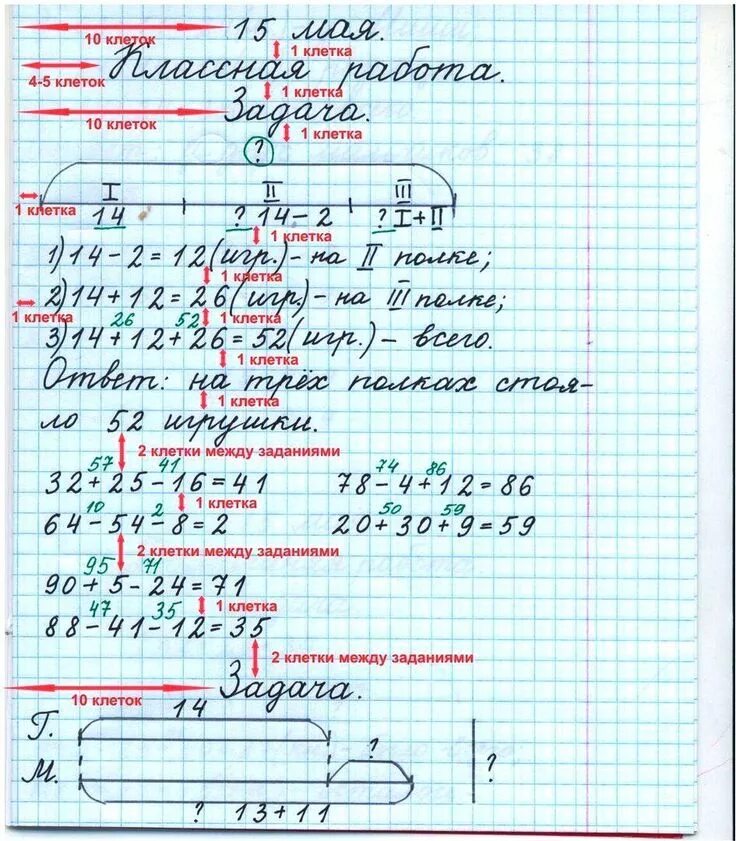 10 клеток 15 мая.
1 клетка
4-5 клеток Классная работа.
1 клетка
10 клеток Задача.
1 клетка
?
I II III
1 клетка 14 ? 14-2 ? I+II
1 клетка
1) 14-2=12(игр.)- на II полке;
1 клетка
2) 14+12=26(игр.)- на III полке;
1 клетка 26 52 1 клетка
3) 14+12+26=52(игр.)- всего.
1 клетка
Ответ: на трёх полках стоя-
1 клетка
ло 52 игрушки.
2 клетки между заданиями
57 41 74 86
32+25-16=41 78-4+12=86
1 клетка
10 2 50 59
64-54-8=2 20+30+9=59
2 клетки между заданиями
95 71
90+5-24=71
47 35 1 клетка
88-41-12=35
2 клетки между заданиями
10 клеток Задача.
14
Г.
?
М. ?
? 13+11